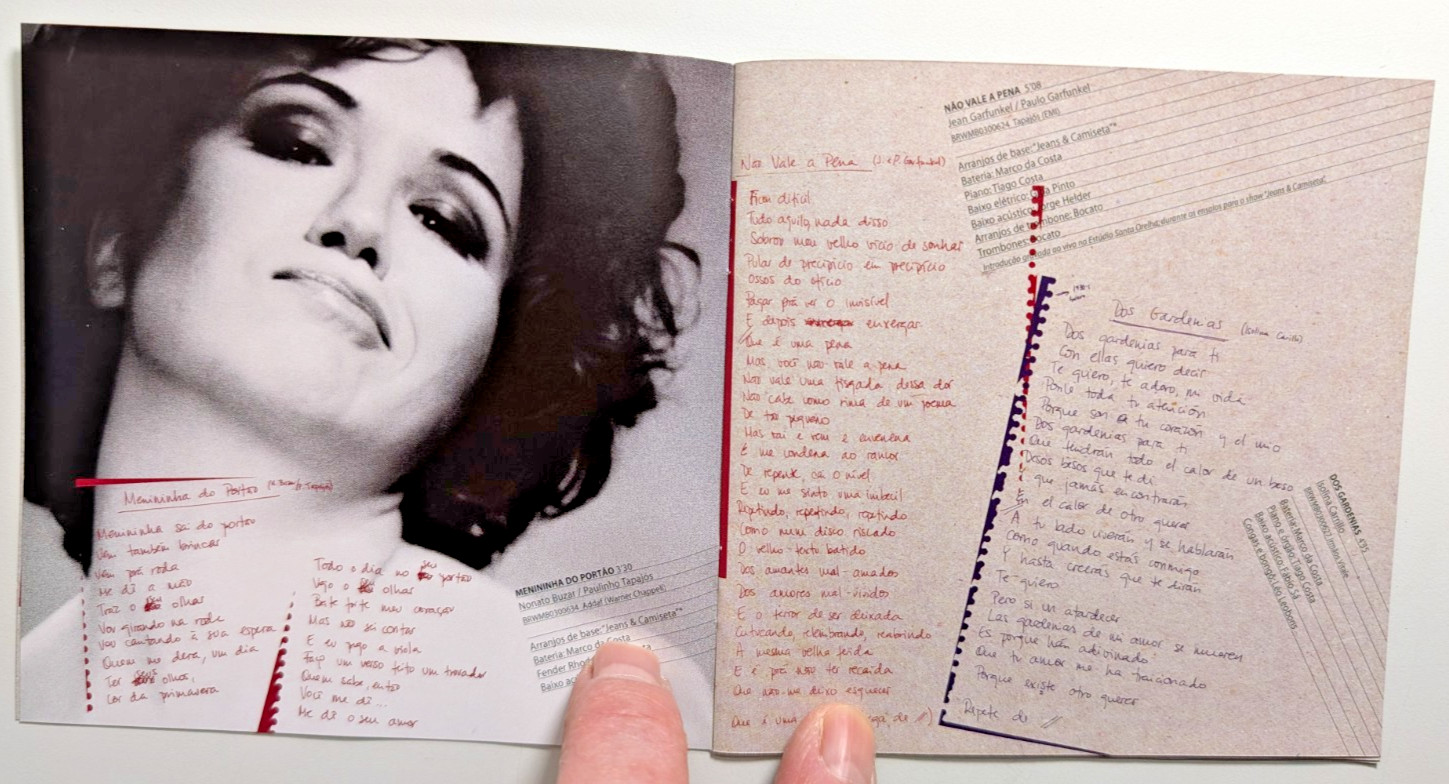 Menininha do Portão
Menininha sai do portão
Vem também brincar
Vem prá roda
Me dê a mão
Traz o seu olhar
Vou girando na roda
Vou cantando à sua espera
Quem me dera, um dia
Ter seus olhos,
Cor da primavera
Todo o dia no seu portão
Vejo o seu olhar
Bate forte meu coração
Mas não sei contar
E eu pego a viola
Faço um verso feito um trovador
Quem sabe, então
Você me dê...
Me dê o seu amor
MENININHA DO PORTÃO 3'30
Nonato Buzar / Paulinho Tapajós
BRWMB0300634 Addaf (Warner Chappell)
Arranjos de base: "Jeans & Camiseta"*
Bateria: Marco da Costa
Fender Rho
Baixo ac
Não Vale a Pena (J. e P. Garfunkel)
Ficou difícil
Tudo aquilo, nada disso
Sobrou meu velho vício de sonhar
Pular de precipício em precipício
Ossos do ofício
Pagar prá ver o invisível
E depois enxergar
Que é uma pena
Mas você não vale a pena
Não vale uma fisgada dessa dor
Não cabe como rima de um poema
De tão pequeno
Mas vai e vem e envenena
E me condena ao rancor
De repente, cai o nível
E eu me sinto uma imbecil
Repetindo, repetindo, repetindo
Como num disco riscado
O velho texto batido
Dos amantes mal-amados
Dos amores mal-vividos
E o terror de ser deixada
Cutucando, relembrando, reabrindo
A mesma velha ferida
E é prá não ter recaída
Que não me deixo esquecer
Que é uma
de //)
NÃO VALE A PENA 5'08
Jean Garfunkel / Paulo Garfunkel
BRWMB0300624 Tapajós (EMI)
Arranjos de base: "Jeans & Camiseta"*
Bateria: Marco da Costa
Piano: Tiago Costa
Baixo elétrico: Pinto
Baixo acústico: Jorge Helder
Arranjos de trombone: Bocato
Trombones: Bocato
Introdução gravada ao vivo no Estúdio Santa Orelha, durante os ensaios para o show "Jeans & Camiseta".
Dos Gardenias (Isolina Carrillo)
Dos gardenias para ti
Con ellas quiero decir
Te quiero, te adoro, mi vida
Ponle toda tu atención
Porque son tu corazón y el mio
Dos gardenias para ti
Que tendrán todo el calor de un beso
Desos besos que te di
Y que jamás encontrarán
En el calor de otro querer
A tu lado vivirán y se hablarán
Como quando estás conmigo
Y hasta creerás que te dirán
Te quiero
Pero si un atardecer
Las gardenias de mi amor se mueren
Es porque han adivinado
Que tu amor me ha traicionado
Porque existe otro querer
Repete de //
DOS GARDENIAS 4'35
Isolina Carrillo
Bateria: Marco da Costa
Piano e órgão: Tiago Costa
Baixo acústico: Fabio Sá
Congas e bongô: